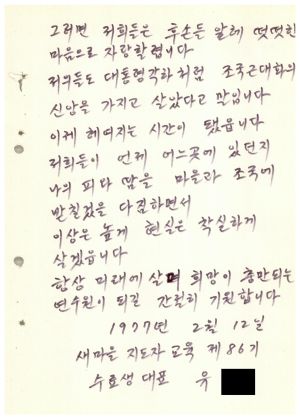 그러면 저희들은 후손들 앞에 떳떳한
마음으로 자랑할렵니다
저희들도 대통령각하처럼 조국근대화의
신앙을 가지고 살았다고 말입니다
이제 헤어지는 시간이 됐읍니다
저희들이 언제 어느곳에 있던지
나의 피와 땀을 마을과 조국에
받칠것을 다짐하면서
이상은 높게 현실은 착실하게
살겠읍니다
항상 미래에 살며 희망이 충만되는
연수원이 되길 간절히 기원합니다
1977년 2월 12일
새마을 지도자 교육 제86기
수료생 대표 유